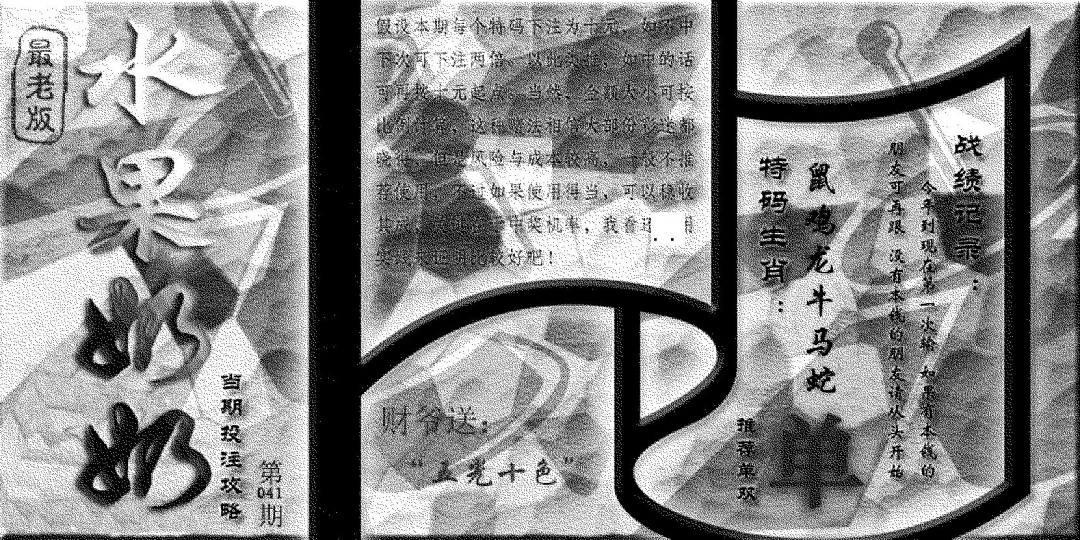 最老版
水果奶奶
当期投注攻略
第041期
假设本期每个特码下注为十元，如不中
下次可下注两倍，以此类推，如中的话
可再按十元起点。当然，金额大小可按
比例
这种
法相信大部份彩迷都
风险与成本较高，
不推
荐使用，不过如果使用得当，可以稳收
中奖机率，我看还
比较好吧！
财爷送：
“五光十色”
战绩记录：
今年到现在第一次输 如果有本钱的
朋友可再跟 没有本钱的朋友请从头开始
特码生肖：
鼠鸡龙牛马蛇
推荐单双
单